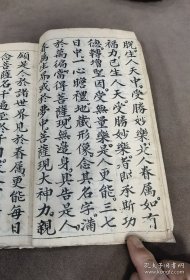 脫生人天中受勝妙樂是人眷属如有
福力已生人天受勝妙樂者即承斯功
德轉增聖因受無量樂是人更能三七
日中一心瞻禮地藏形像念其名字滿
於萬遍當得菩薩現無邊身具告是人
眷属生界或於夢中菩薩現大神力親
領是人於諸世界見於眷属更能每日
念菩薩名千